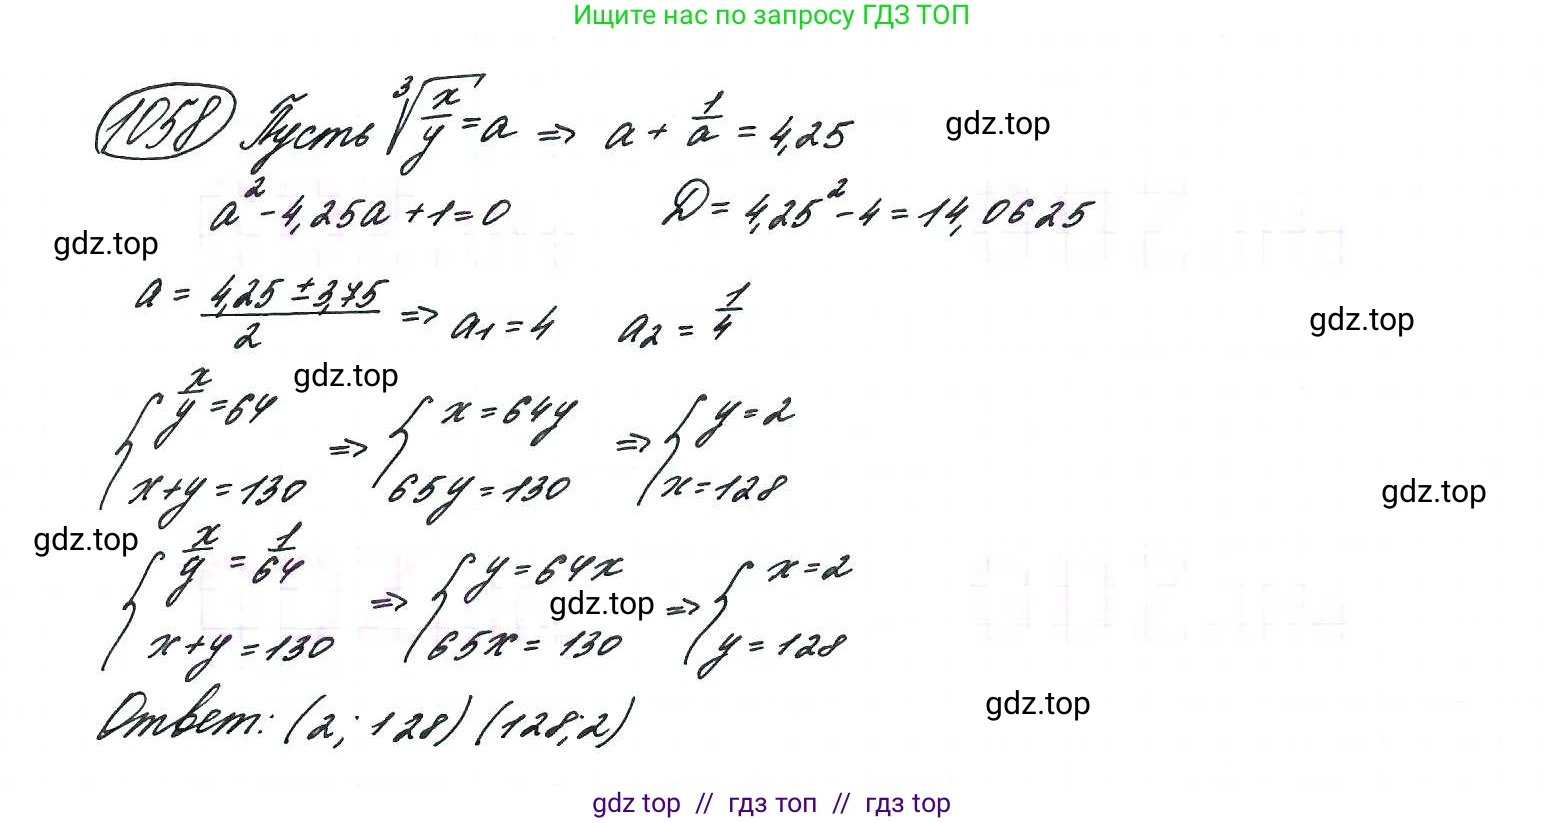 Ищите нас по запросу ГДЗ ТОП
1058 Пусть ∛(x/y) = a ⇒ a + 1/a = 4,25 gdz.top
a² - 4,25a + 1 = 0 D = 4,25² - 4 = 14,0625
gdz.top
a = (4,25 ± 3,75)/2 ⇒ a₁ = 4 a₂ = 1/4 gdz.top
gdz.top
{ x/y = 64 ⇒ { x = 64y ⇒ { y = 2
x + y = 130 65y = 130 x = 128 gdz.top
gdz.top
{ x/y = 1/64 ⇒ { y = 64x ⇒ { x = 2
gdz.top
x + y = 130 65x = 130 y = 128
Ответ: (2; 128) (128; 2) gdz.top
gdz top // гдз топ // гдз top